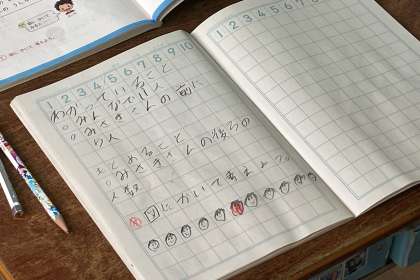 1 2 3 4 5 6 7 8 9 10
わかっていること
○みんなで11人
○みさきさんの前に
5人
もとめること
○みさきさんの後ろの
人数
図にかいて考えよう。
1 2 3 4 5 6 7 8 9 10